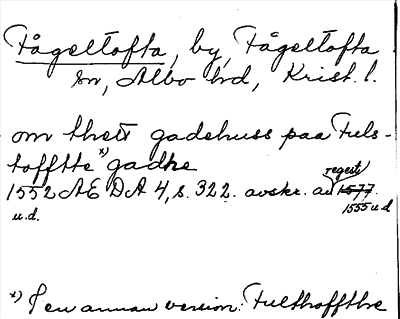 Fågeltofta, by, Fågeltofta
sn, Albo hd, Krist. l.
om thett gadehuss paa Fuls-
tofftte *) gadhe
regest
1552 AEDA 4, s. 322. avskr. av 1577.
u.d.
1555 u d
*) I en annan version: Fulthoffthe